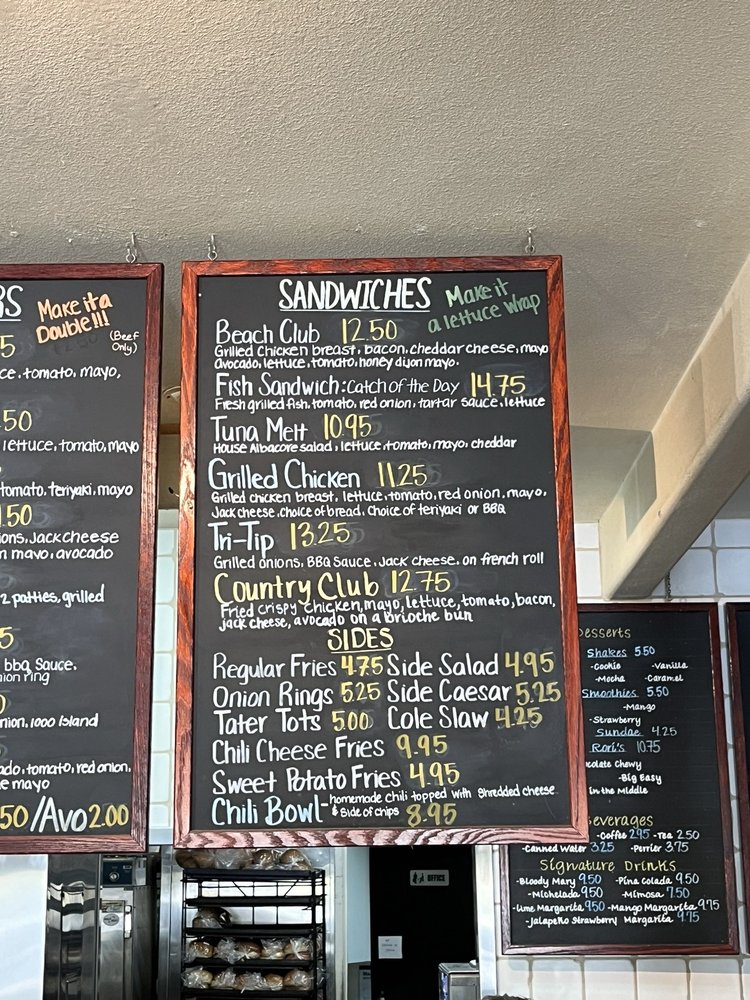 RS
Make it a
Double!!!
(Beef
Only)
5
ce, tomato, mayo,
.50
lettuce, tomato, mayo
tomato, teriyaki, mayo
1.50
ions, Jack cheese
n mayo, avocado
2 patties, grilled
5
bbq Sauce.
nion ring
0
nion, 1000 Island
ado, tomato, red onion,
e mayo
50/Avo 2.00
SANDWICHES
Make it
a lettuce wrap
Beach Club 12.50
Grilled Chicken breast, bacon, cheddar cheese, mayo
avocado, lettuce, tomato, honey dijon mayo.
Fish Sandwich: Catch of the Day 14.75
Fresh grilled fish, tomato, red onion, tartar sauce, lettuce
Tuna Melt 10.95
House Albacore salad, lettuce, tomato, mayo, cheddar
Grilled Chicken 11.25
Grilled chicken breast, lettuce, tomato, red onion, mayo,
Jack cheese, choice of bread, choice of teriyaki or BBQ
Tri-Tip 13.25
Grilled onions, BBQ sauce, Jack cheese, on french roll
Country Club 12.75
Fried crispy chicken, mayo, lettuce, tomato, bacon,
jack cheese, avocado on a brioche bun
SIDES
Regular Fries 4.75 Side Salad 4.95
Onion Rings 5.25 Side Caesar 5.25
Tater Tots 5.00 Cole Slaw 4.25
Chili Cheese Fries 9.95
Sweet Potato Fries 4.95
Chili Bowl - homemade chili topped with shredded cheese
& side of chips 8.95
Desserts
Shakes 5.50
-Cookie -Vanilla
-Mocha -Caramel
Smoothies 5.50
-Mango
-Strawberry
Sundae 4.25
Rori's 10.75
ocolate Chewy
-Big Easy
in the Middle
Beverages
-Coffee 2.95 -Tea 2.50
-Canned Water 3.25 -Perrier 3.75
Signature Drinks
-Bloody Mary 9.50 -Pina Colada 9.50
-Michelada 9.50 -Mimosa 7.50
-Lime Margarita 9.50 -Mango Margarita 9.75
-Jalapeño Strawberry Margarita 9.75
OFFICE